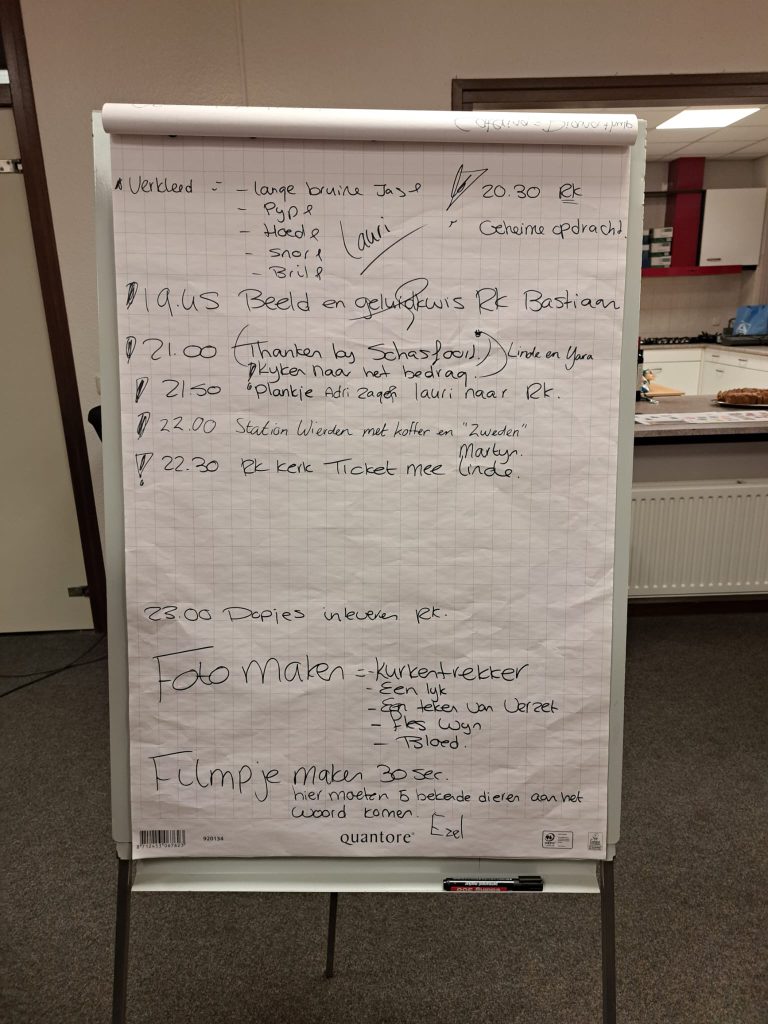 Verkleed = - lange bruine Jas
- Pyp
- Hoed
- snor
- Bril
Lauri
20.30 Rk
Geheime opdracht.
19.45 Beeld en geluidkwis Rk Bastiaan
21.00 (Thanken by Schasfoord.) Linde en Yara
Kyken naar het bedrag.
21.50 Plankje Adri zagen lauri naar Rk.
22.00 Station Wierden met koffer en "Zweden"
Martyn.
! 22.30 Rk kerk Ticket mee Linde.
23.00 Dopjes inleveren Rk.
Foto maken = - kurkentrekker
- Een lyk
- Een teken van Verzet
- Fles Wyn
- Bloed.
Filmpje maken 30 sec.
hier moeten 5 bekende dieren aan het
woord komen.
Ezel
8712453067827 920134 quantore